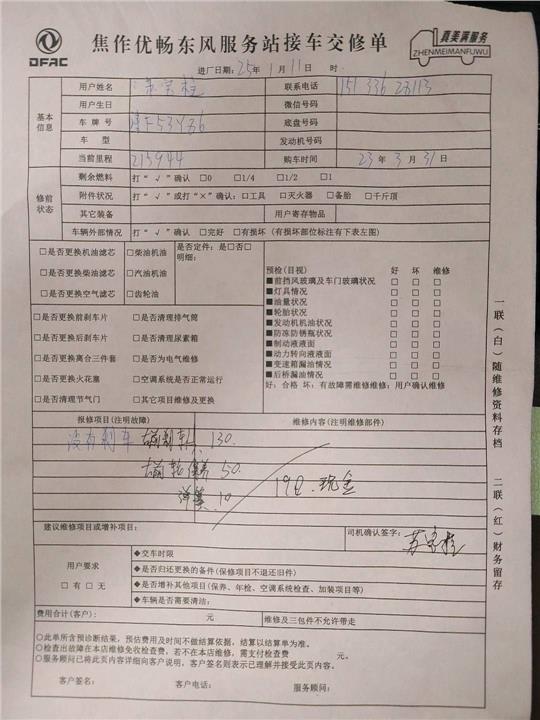 DFAC
焦作优畅东风服务站接车交修单
真美满服务
ZHENMEIMANFUWU
进厂日期：25年 1月 11日 时
基本信息
用户姓名
联系电话 151 336 28113
用户生日 微信号码
车牌号 底盘号码
车型 发动机号码
当前里程 215944 购车时间 23年 3月 31日
修前状态
剩余燃料 打“√”确认 □0 □1/4 □1/2 □1
附件状况 打“√”或打“×”确认：□工具 □灭火器 □备胎 □千斤顶
其它装备 用户寄存物品
车辆外部情况 打“√”确认 □完好 □有损坏（有损坏部位标注有下表左图）
□是否更换机油滤芯 □柴油机油
□是否更换柴油滤芯 □汽油机油
□是否更换空气滤芯 □齿轮油
是否定件：是□否□
明细：
□是否更换前刹车片 □是否清理排气筒
□是否更换后刹车片 □是否清理尿素箱
□是否更换离合三件套 □是否为电气维修
□是否更换火花塞 □空调系统是否正常运行
□是否清理节气门 □其它项目维修及更换
预检（目视） 好 坏 维修
■前挡风玻璃及车门玻璃状况 □ □ □
■灯具情况 □ □ □
■油量状况 □ □ □
■轮胎状况 □ □ □
■发动机机油状况 □ □ □
■防冻防锈瓶状况 □ □ □
■制动液液面 □ □ □
■动力转向液液面 □ □ □
■变速箱漏油情况 □ □ □
■后桥漏油情况 □ □ □
好：合格 坏：有故障需维修维修：用户确认维修
报修项目（注明故障） 维修内容（注明维修部件）
没有刹车 130.
右前轮保养 50.
10
190.现金
建议维修项目或增补项目：
司机确认签字：
用户要求
□有 □无
◆交车时限
◆是否归还更换的备件（保修项目不退还旧件）
◆是否增补其他项目（保养、年检、空调系统检查、加装项目等）
◆车辆是否需要清洁：
费用合计（客户）： 元 维修及三包件不允许带走
○此单所含预诊断结果，预估费用及时间不做结算依据，结算以结算单为准。
○检查出故障在本店维修免收检查费，若不在本店维修，需支付检查费 元。
○服务顾问已将此页内容详细向客户说明，客户签名则表示已理解并接受此页内容。
客户签名： 客户电话： 服务顾问：
一联（白）随维修资料存档
二联（红）财务留存